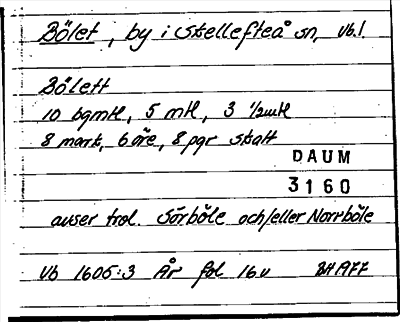 Bölet, by i Skellefteå sn, Vb.l.
Bölett
10 bgmtl, 5 mtl, 3 ½mtl
8 mark, 6 öre, 8 pgr skatt
DAUM
3160
avser trol. Sörböle och/eller Norrböle
Vb 1605:3 År fol 16v BH 1977